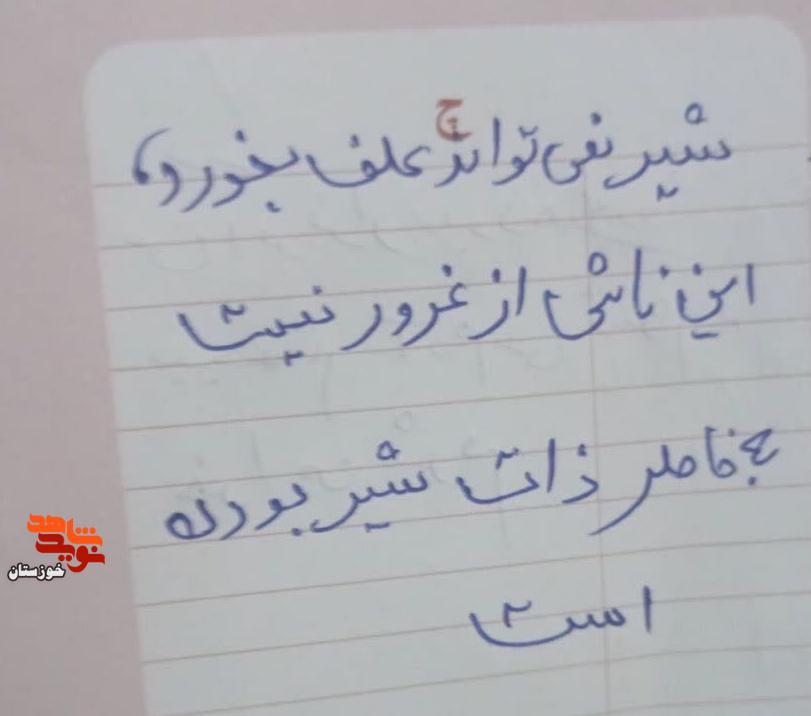 شیر نمی تواند علف بخورد،
این ناشی از غرور نیست
بخاطر ذات شیر بودن
است
نوید شاهد
خوزستان